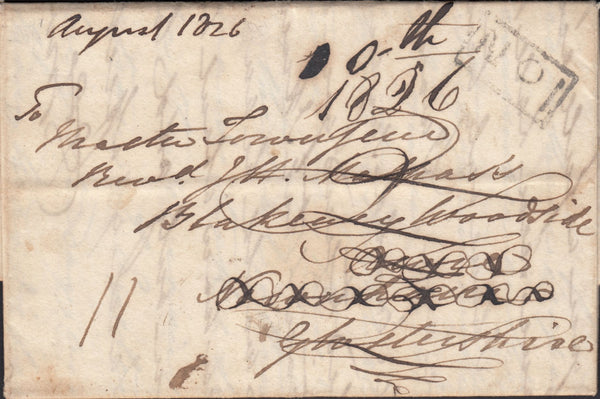 August 1826
10th
1826
To
Master Townsend
Revd. J H.
Blakeney Woodside
Glostershire
11
No 1